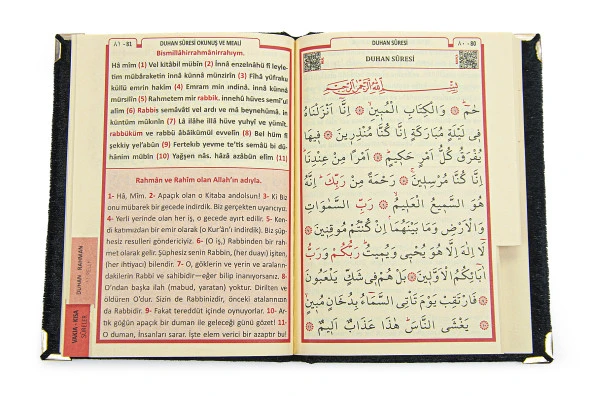 ٨١ - 81 DUHAN SÛRESİ OKUNUŞ VE MEALİ
Bismillâhirrahmânirrahıym.
Hâ mîm (1) Vel kitâbil mübîn (2) İnnâ enzelnâhü fî leyle-
tim mübâraketin innâ künnâ münzirîn (3) Fîhâ yüfraku
küllü emrin hakîm (4) Emram min ındinâ. innâ künnâ
mürsilîn (5) Rahmetem mir rabbik. innehû hüves semî'ul
alîm (6) Rabbis semâvâti vel ardı ve mâ beynehümâ. in
küntüm mûkınîn (7) Lâ ilâhe illâ hüve yuhyî ve yümît.
rabbüküm ve rabbü âbâikümül evvelîn (8) Bel hüm fî
şekkiy yel'abûn (9) Fertekıb yevme te'tis semâü bi dü-
hânim mübîn (10) Yağşen nâs. hâzâ azâbün elîm (11)
Rahmân ve Rahîm olan Allah'ın adıyla.
1- Hâ, Mîm. 2- Apaçık olan o Kitaba andolsun! 3- Ki Biz
onu mübarek bir gecede indirdik. Biz gerçekten uyarıcıyız.
4- Yerli yerinde olan her iş, o gecede ayırt edilir. 5- Ken-
di katımızdan bir emir olarak (o Kur'ân'ı indirdik). Biz şüp-
hesiz resulleri göndericiyiz. 6- (O iş,) Rabbinden bir rah-
met olarak gelir. Şüphesiz senin Rabbin, (her duayı) işiten,
(her ihtiyacı) bilendir. 7- O, göklerin ve yerin ve araların-
dakilerin Rabbi ve sahibidir—eğer bilip inanıyorsanız. 8-
O'ndan başka ilah (mabud, yaratan) yoktur. Dirilten ve
öldüren O'dur. Sizin de Rabbinizdir, önceki atalarınızın
da Rabbidir. 9- Fakat tereddüt içinde oynuyorlar. 10- Ar-
tık göğün apaçık bir duman ile geleceği günü gözet! 11-
O duman, İnsanları sarar. İşte elem verici bir azaptır bu!
DUHAN - RAHMAN
VAKIA - KISA
SÛRELER
DUHAN SÛRESİ ٨٠ - 80
DUHAN SÛRESİ
بِسْمِ اللّٰهِ الرَّحْمٰنِ الرَّحِيمِ
حٰمٓ ۞ وَالْكِتَابِ الْمُبِينِ ۞ اِنَّٓا اَنْزَلْنَاهُ
فِى لَيْلَةٍ مُبَارَكَةٍ اِنَّا كُنَّا مُنْذِرِينَ ۞ فِيهَا
يُفْرَقُ كُلُّ اَمْرٍ حَكِيمٍ ۞ اَمْرًا مِنْ عِنْدِنَا
اِنَّا كُنَّا مُرْسِلِينَ ۞ رَحْمَةً مِنْ رَبِّكَ اِنَّهُ
هُوَ السَّمِيعُ الْعَلِيمُ ۞ رَبِّ السَّمٰوَاتِ
وَالْاَرْضِ وَمَا بَيْنَهُمَا اِنْ كُنْتُمْ مُوقِنِينَ ۞
لَٓا اِلٰهَ اِلَّا هُوَ يُحْيِى وَيُمِيتُ رَبُّكُمْ وَرَبُّ
اٰبَٓائِكُمُ الْاَوَّلِينَ ۞ بَلْ هُمْ فِى شَكٍّ يَلْعَبُونَ
۞ فَارْتَقِبْ يَوْمَ تَاْتِى السَّمَٓاءُ بِدُخَانٍ مُبِينٍ
۞ يَغْشَى النَّاسَ هٰذَا عَذَابٌ اَلِيمٌ ۞